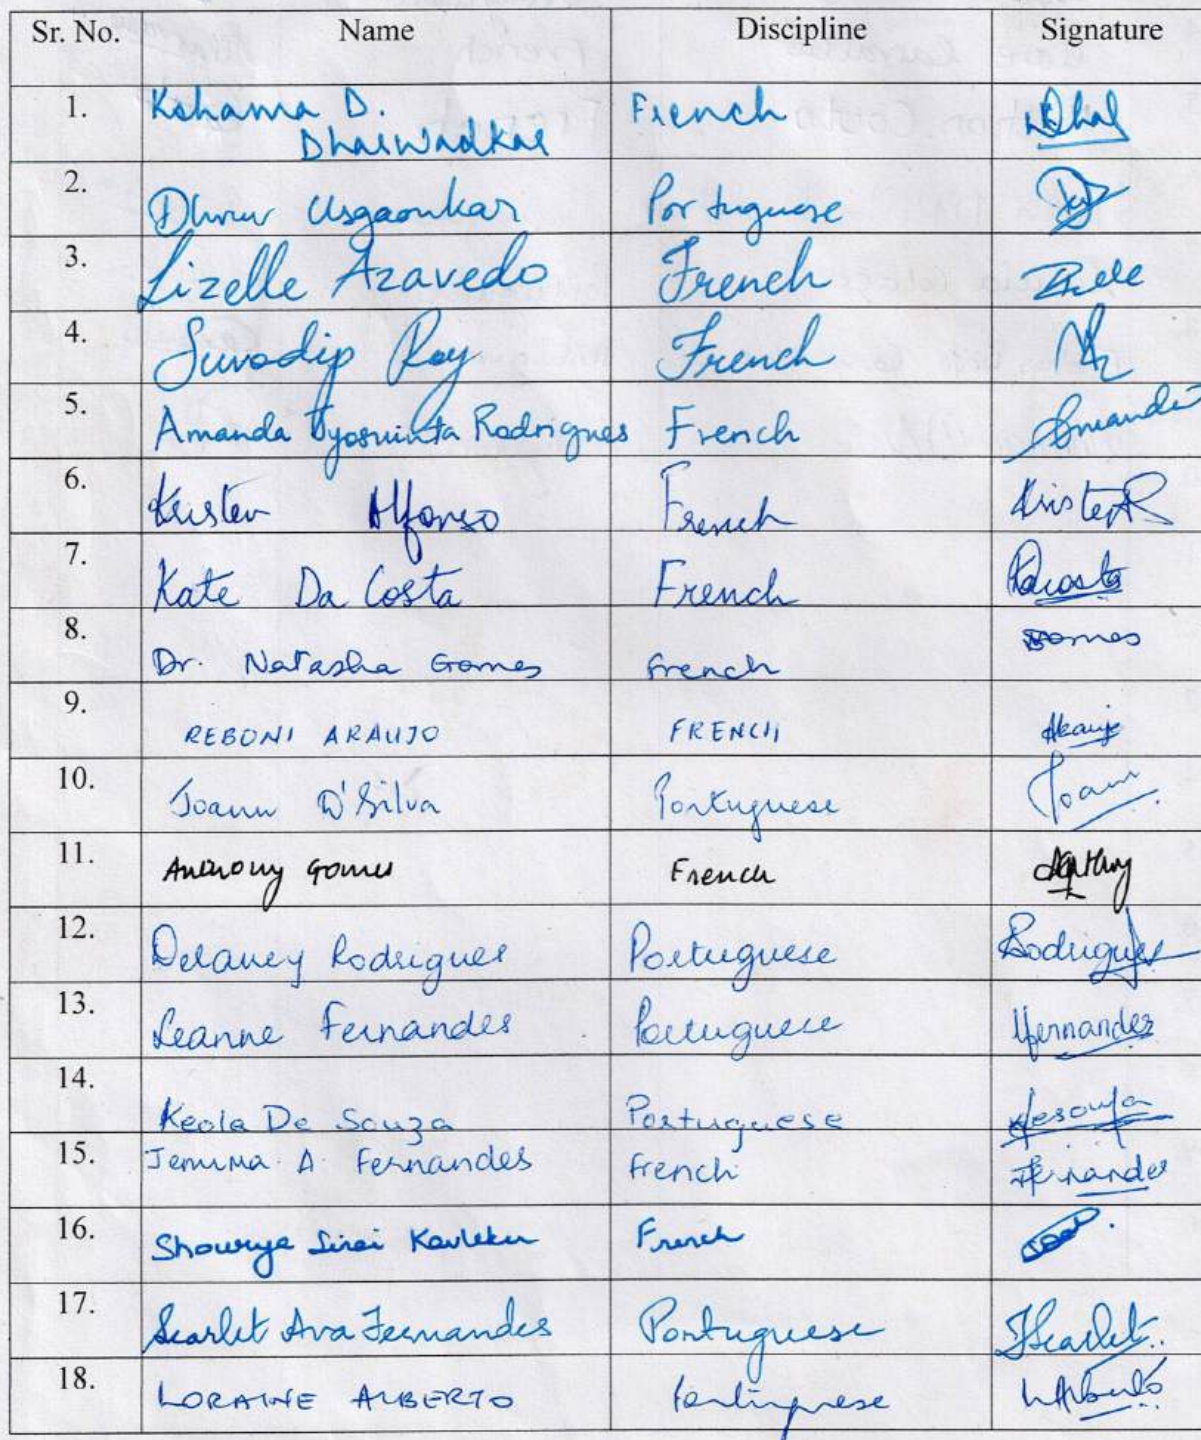 Sr. No. Name Discipline Signature
1. Kshama D. French Dhal
Dhaiwadkar
2. Dhruv Usgaonkar Portuguese
3. Lizelle Azavedo French
4. Suvadip Roy French
5. Amanda Rodrigues French Amanda
6. Kristen Alfonso French Kristen
7. Kate Da Costa French Dacosta
8. Dr. Natasha Gomes French Gomes
9. REBONI ARAUJO FRENCH Araujo
10. Joann D'Silva Portuguese Joann
11. Anthony Gomes French Anthony
12. Delaney Rodrigues Portuguese Rodrigues
13. Leanne Fernandes Portuguese Lfernandes
14. Keola De Souza Portuguese Kdesouza
15. Jemima A. Fernandes French Jfernandes
16. Showrya Sinai French
17. Scarlet Ava Fernandes Portuguese Scarlet
18. LORAINE ALBERTO Portuguese LAlberto